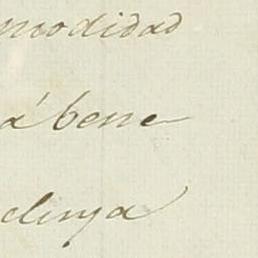 modidad
á bene
clinga